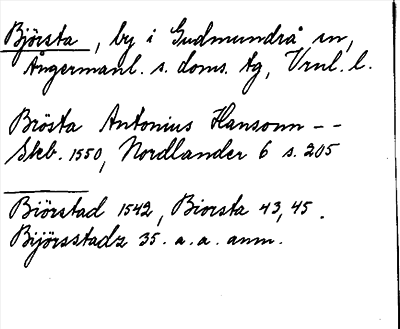 Björsta, by i Gudmundrå sn,
Ångermanl. s. doms. tg, Vrnl. l.
Brösta Antonius Hansonn - -
Skb. 1550, Nordlander 6 s. 205
Biörstad 1542, Biorsta 43, 45.
Bijörsstadz 35. a. a. anm.